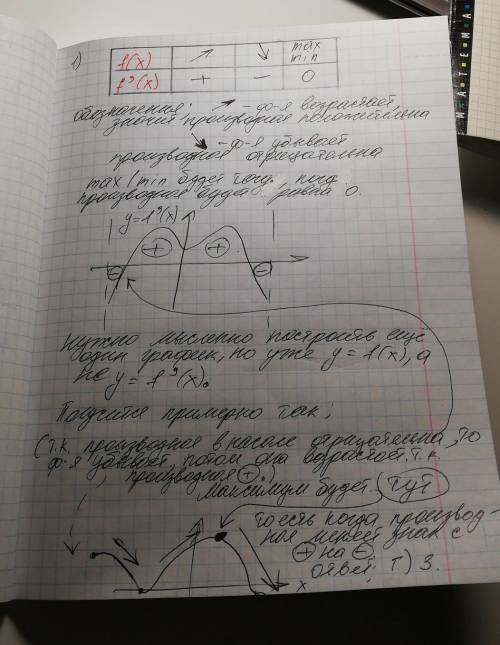 1)
f(x) ↗ ↘ max min
f'(x) + − 0
обозначения: ↗ - ф-я возрастает,
значит производная положительна
↘ - ф-я убывает
производная отрицательна
max/min будет тогд. когд.
производная будет равна 0.
y=f'(x)
+ +
− −
Нужно мысленно построить ещё
один график, но уже y=f(x), а
не y=f'(x).
Получится примерно так:
(т.к. производная в начале отрицательна, то
ф-я убывает, потом она возрастает т.к.
производная +.)
Максимум будет тут
то есть когда производ-
ная меняет знак с
+ на −
ответ: Г) 3.
x
MATEMA